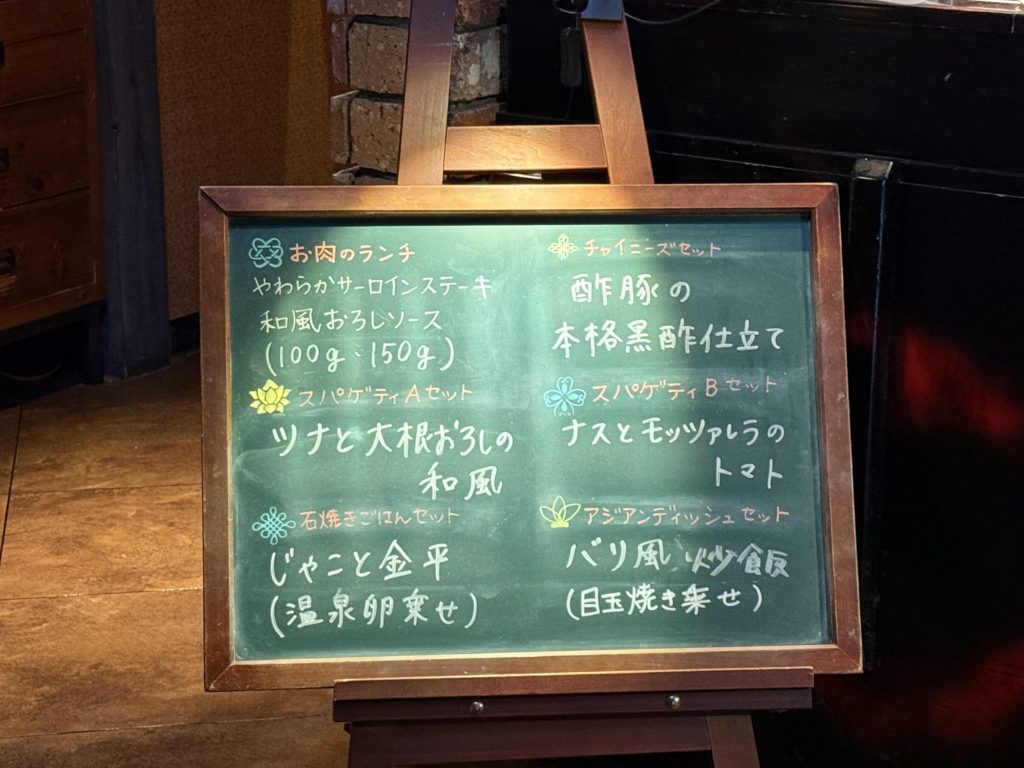 お肉のランチ
やわらかサーロインステーキ
和風おろしソース
(100g、150g)
スパゲティAセット
ツナと大根おろしの
和風
石焼きごはんセット
じゃこと金平
(温泉卵乗せ)
チャイニーズセット
酢豚の
本格黒酢仕立て
スパゲティBセット
ナスとモッツァレラの
トマト
アジアンディッシュセット
バリ風 炒飯
(目玉焼き乗せ)